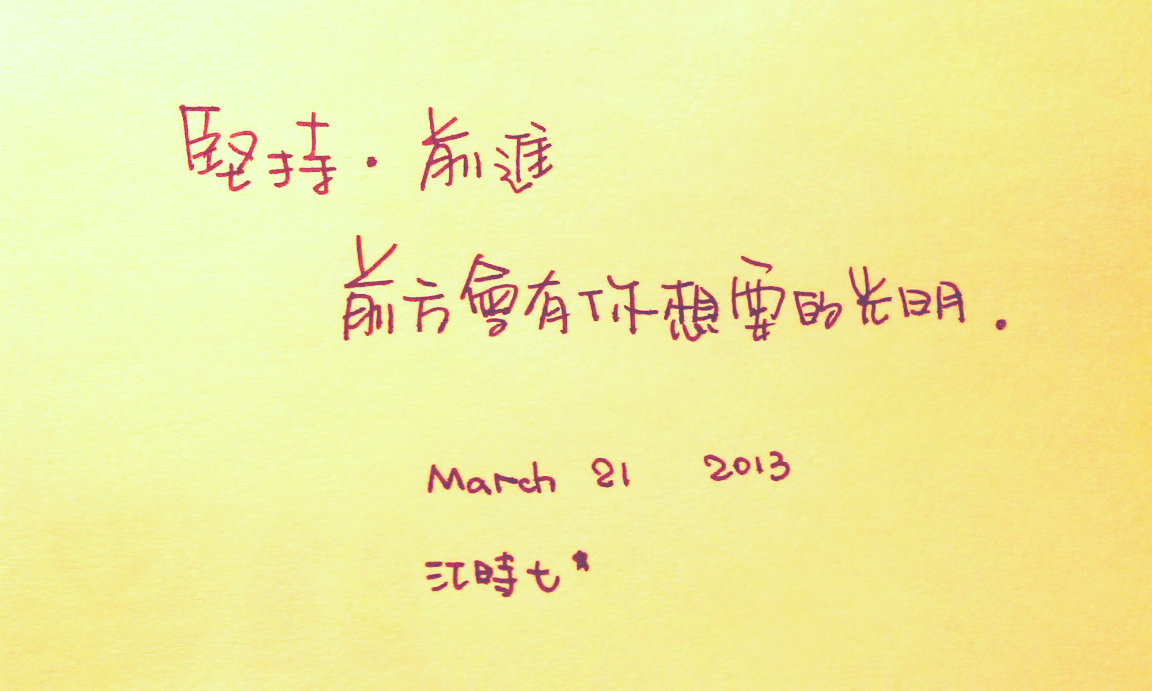 堅持·前進
前方會有你想要的光明.
March 21 2013
江時七*